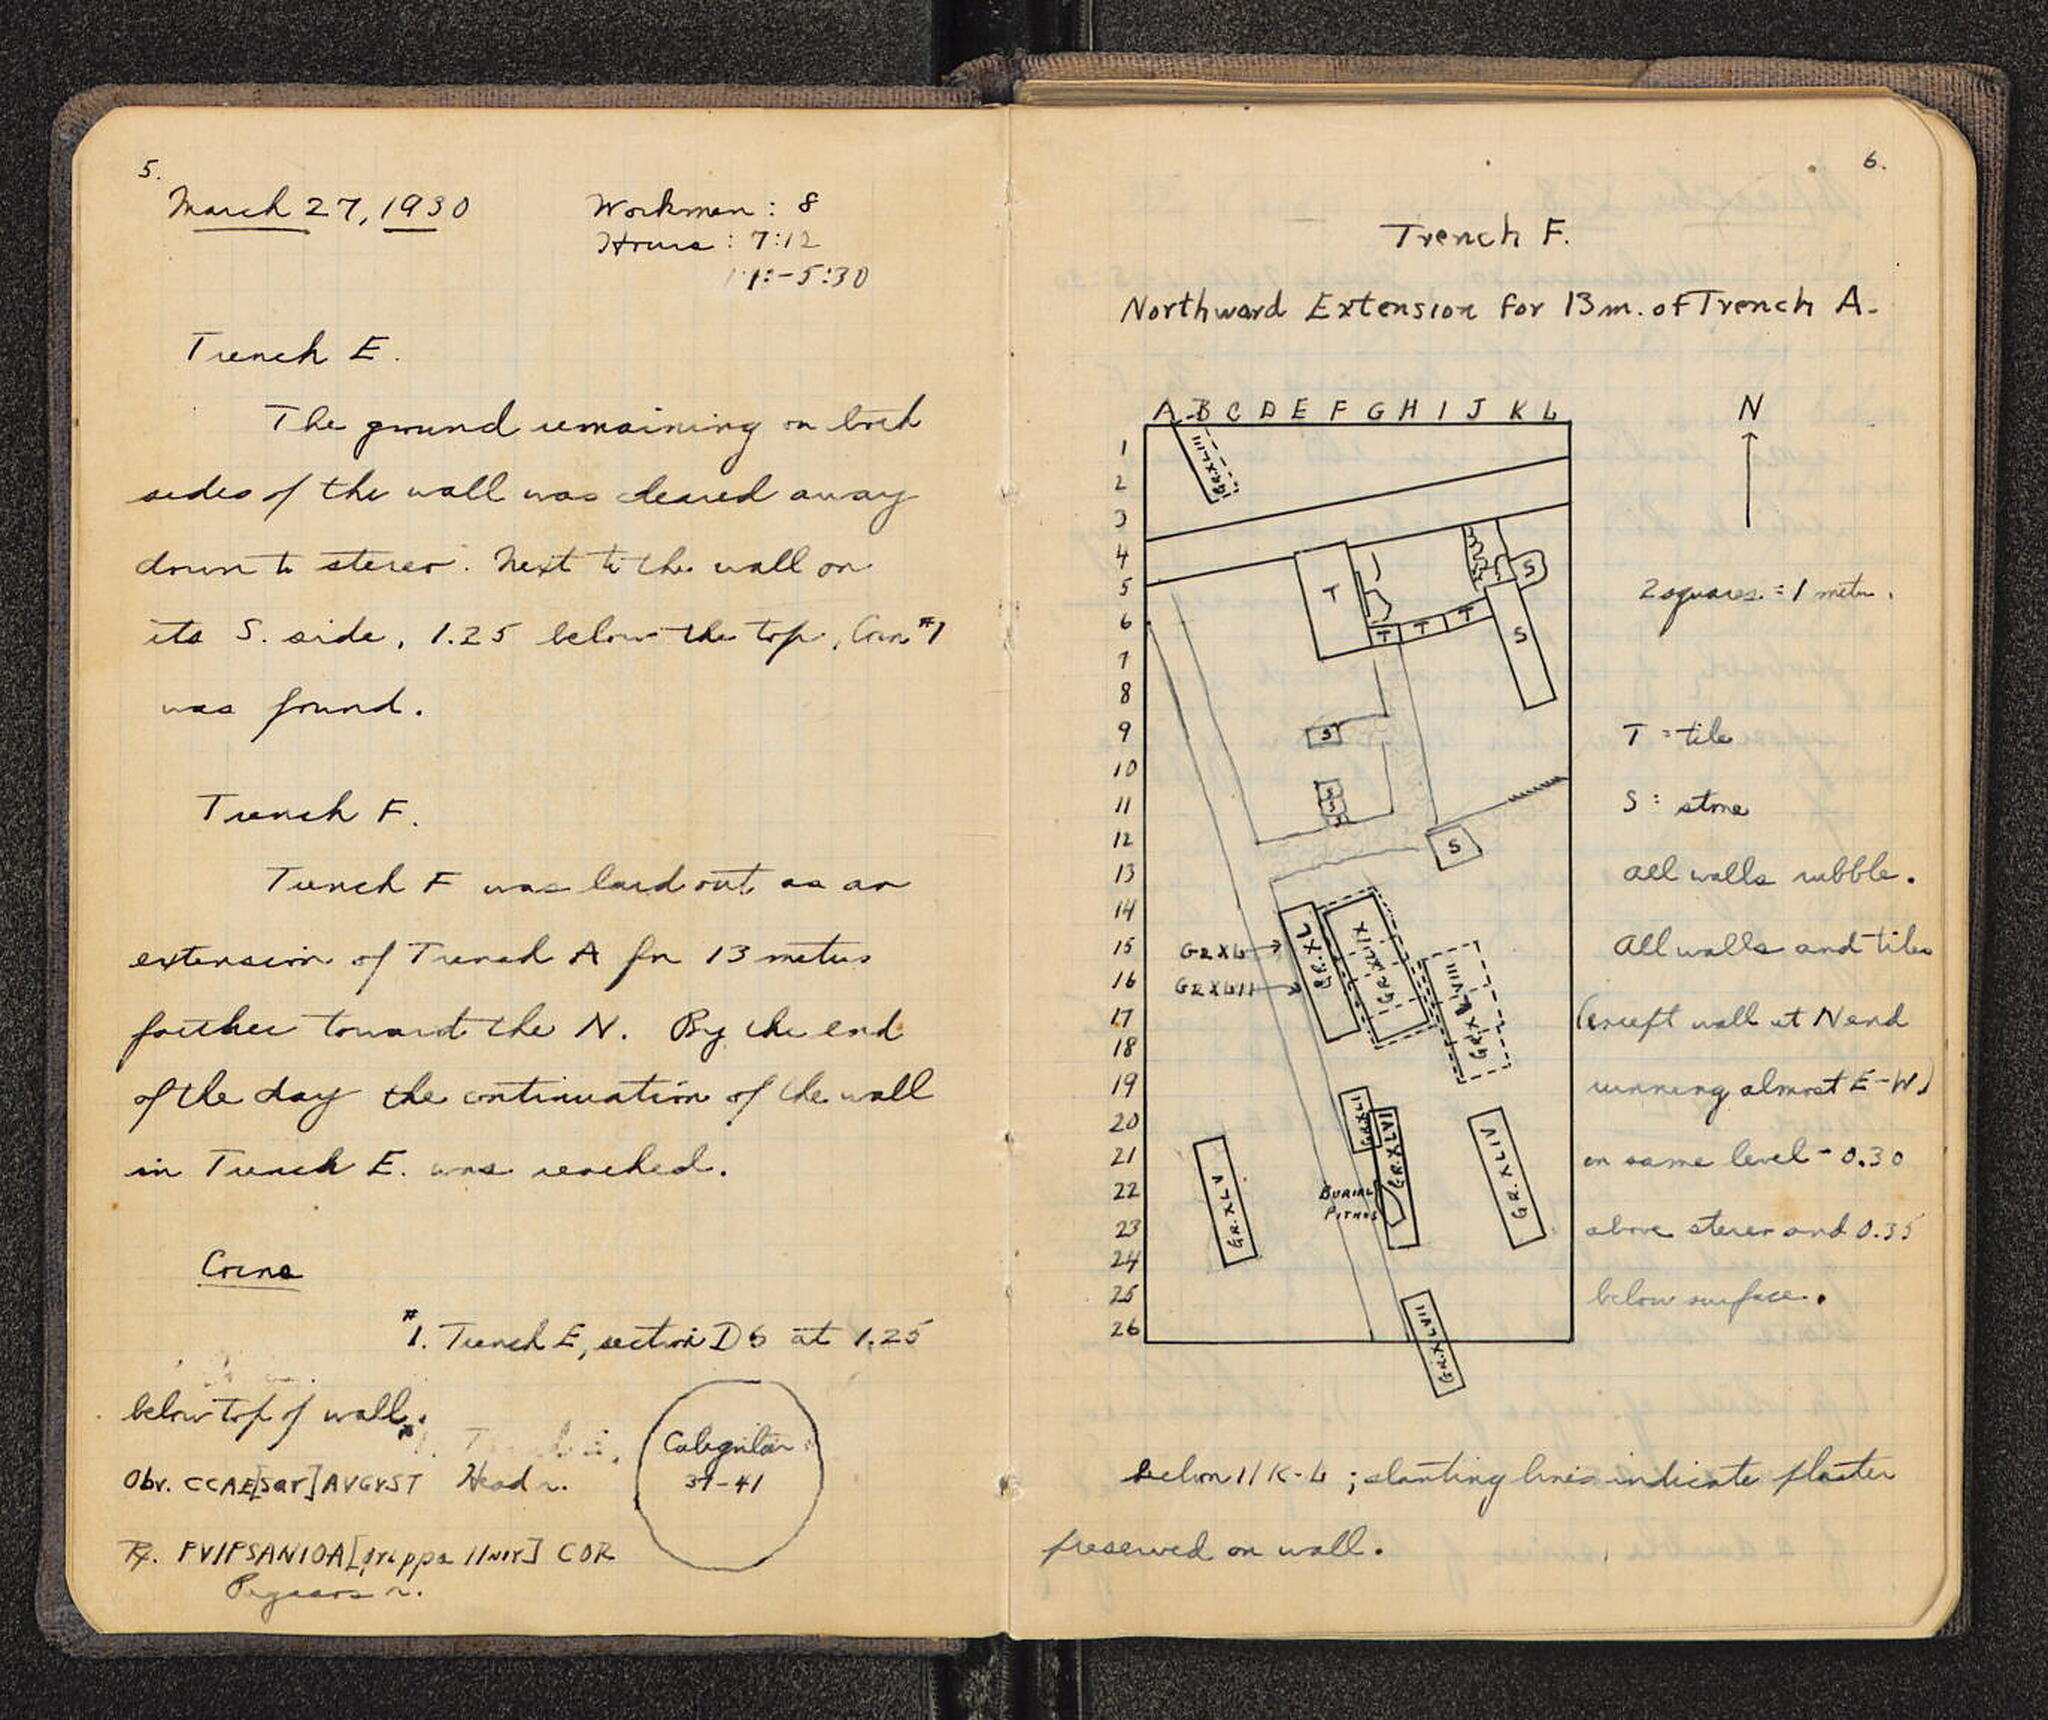 5.
March 27, 1930
Workmen : 8
Hours : 7:12
1:-5:30
Trench E.
The ground remaining on both
sides of the wall was cleared away
down to stereo. Next to the wall on
its S. side, 1.25 below the top, Coin #1
was found.
Trench F.
Trench F was laid out as an
extension of Trench A for 13 meters
farther toward the N. By the end
of the day the continuation of the wall
in Trench E. was reached.
Coins
#1. Trench E, section D6 at 1.25
below top of wall.
Obv. CCAE[sar]AVGVST Head r.
Caligulan
37-41
Rx. PVIPSANIOA[grippa IIvir] COR
Pegasos r.
6.
Trench F.
Northward Extension for 13m. of Trench A.
A B C D E F G H I J K L
N
1
2
3
4
5
6
7
8
9
10
11
12
13
14
15
16
17
18
19
20
21
22
23
24
25
26
GR.XLIII
T
S
T T T
S
S
S
S
S
GR XL
GR XLII
GR.XL
GR XLIX
GR XLVIII
GR XLI
GR.XLVI
GR. XLIV
GR. XLV
BURIAL
PITHOS
GR.XLVII
2 squares = 1 meter.
T = tile
S = stone
All walls rubble.
All walls and tiles
(except wall at N end
running almost E-W)
on same level - 0.30
above stereo and 0.35
below surface.
below 11 K-L ; slanting lines indicate plaster
preserved on wall.